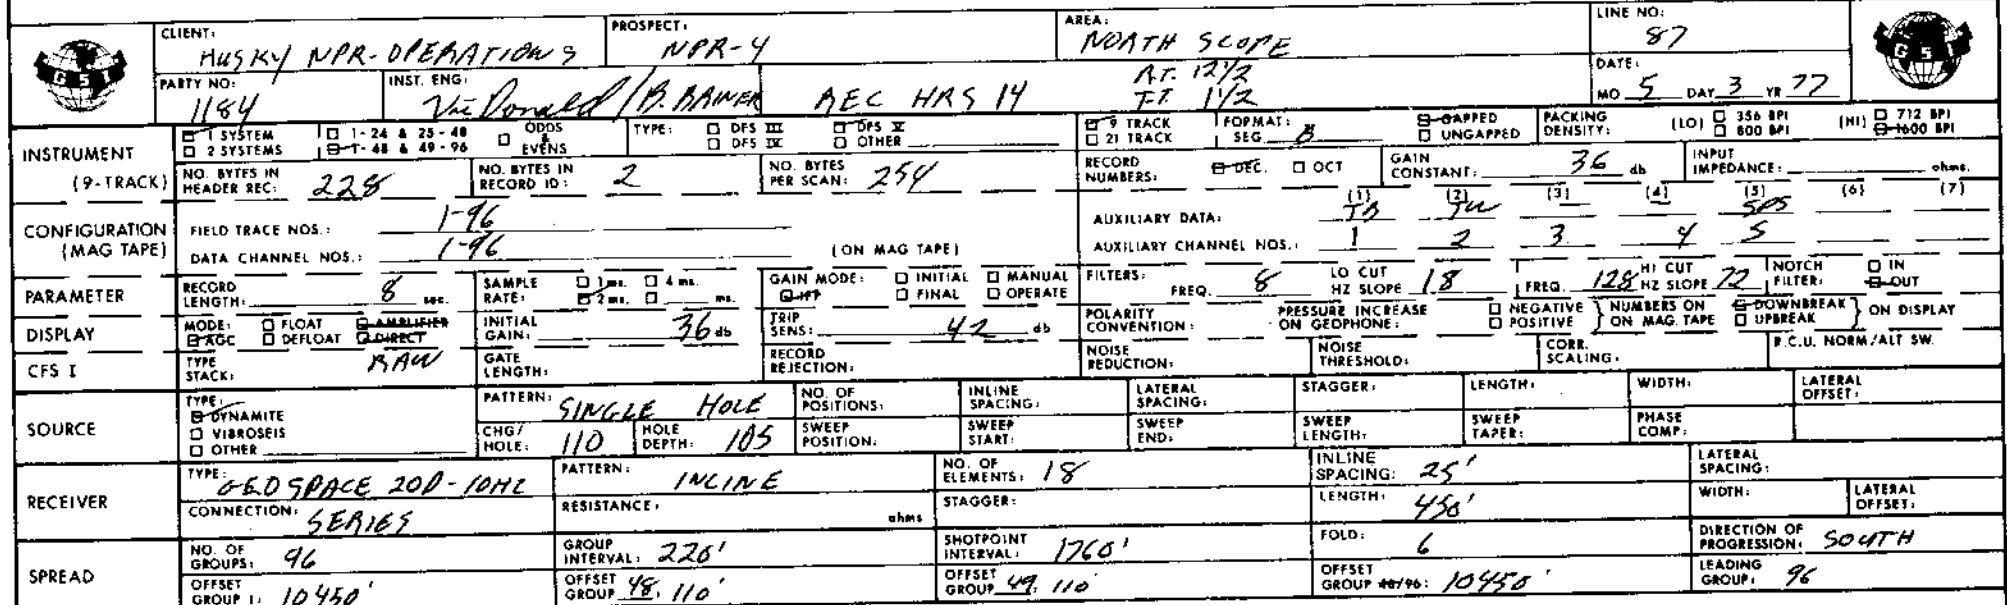 CLIENT: HUSKY NPR-OPERATIONS PROSPECT: NPR-4 AREA: NORTH SLOPE LINE NO: 87
GSI GSI
PARTY NO: 1184 INST. ENG: Vic Donald / B. RAINER REC HRS 14 R.T. 12 1/2 F.T. 1 1/2 DATE: MO 5 DAY 3 YR 77
INSTRUMENT (9-TRACK) 1 SYSTEM 1-24 & 25-48 ODDS & EVENS TYPE: DFS III DFS V 9 TRACK FORMAT: SEG B GAPPED PACKING DENSITY: (LO) 356 BPI (HI) 712 BPI
2 SYSTEMS 1-48 & 49-96 DFS IV OTHER 21 TRACK UNGAPPED 800 BPI 1600 BPI
NO. BYTES IN HEADER REC: 228 NO. BYTES IN RECORD ID: 2 NO. BYTES PER SCAN: 254 RECORD NUMBERS: DEC. OCT GAIN CONSTANT: 36 db INPUT IMPEDANCE: ohms.
CONFIGURATION (MAG TAPE) (1) (2) (3) (4) (5) (6) (7)
FIELD TRACE NOS.: 1-96 AUXILIARY DATA: TB SPS
DATA CHANNEL NOS.: 1-96 (ON MAG TAPE) AUXILIARY CHANNEL NOS.: 1 2 3 4 5
PARAMETER RECORD LENGTH: 8 sec. SAMPLE RATE: 1 ms. 4 ms. 2 ms. ms. GAIN MODE: INITIAL MANUAL IFP FINAL OPERATE FILTERS: FREQ. 8 LO CUT HZ SLOPE 18 FREQ. 128 HI CUT HZ SLOPE 72 NOTCH FILTER: IN OUT
DISPLAY MODE: FLOAT AMPLIFIER AGC DEFLOAT DIRECT INITIAL GAIN: 36 db TRIP SENS: 42 db POLARITY CONVENTION: PRESSURE INCREASE ON GEOPHONE: NEGATIVE POSITIVE } NUMBERS ON ON MAG. TAPE DOWNBREAK UPBREAK } ON DISPLAY
CFS I TYPE STACK: RAW GATE LENGTH: RECORD REJECTION: NOISE REDUCTION: NOISE THRESHOLD: CORR. SCALING: R.C.U. NORM/ALT SW.
SOURCE TYPE: DYNAMITE VIBROSEIS OTHER PATTERN: SINGLE HOLE NO. OF POSITIONS: INLINE SPACING: LATERAL SPACING: STAGGER: LENGTH: WIDTH: LATERAL OFFSET:
CHG/HOLE: 110 HOLE DEPTH: 105 SWEEP POSITION: SWEEP START: SWEEP END: SWEEP LENGTH: SWEEP TAPER: PHASE COMP:
RECEIVER TYPE: GEOSPACE 20D-10HZ PATTERN: INLINE NO. OF ELEMENTS: 18 INLINE SPACING: 25' LATERAL SPACING:
CONNECTION: SERIES RESISTANCE: ohms STAGGER: LENGTH: 450' WIDTH: LATERAL OFFSET:
SPREAD NO. OF GROUPS: 96 GROUP INTERVAL: 220' SHOTPOINT INTERVAL: 1760' FOLD: 6 DIRECTION OF PROGRESSION: SOUTH
OFFSET GROUP 1: 10450' OFFSET GROUP 48: 110' OFFSET GROUP 49: 110' OFFSET GROUP 48/96: 10450' LEADING GROUP: 96